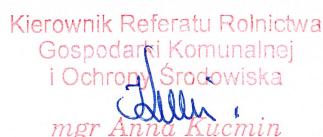 Kierownik Referatu Rolnictwa
Gospodarki Komunalnej
i Ochrony Środowiska
mgr Anna Kucmin